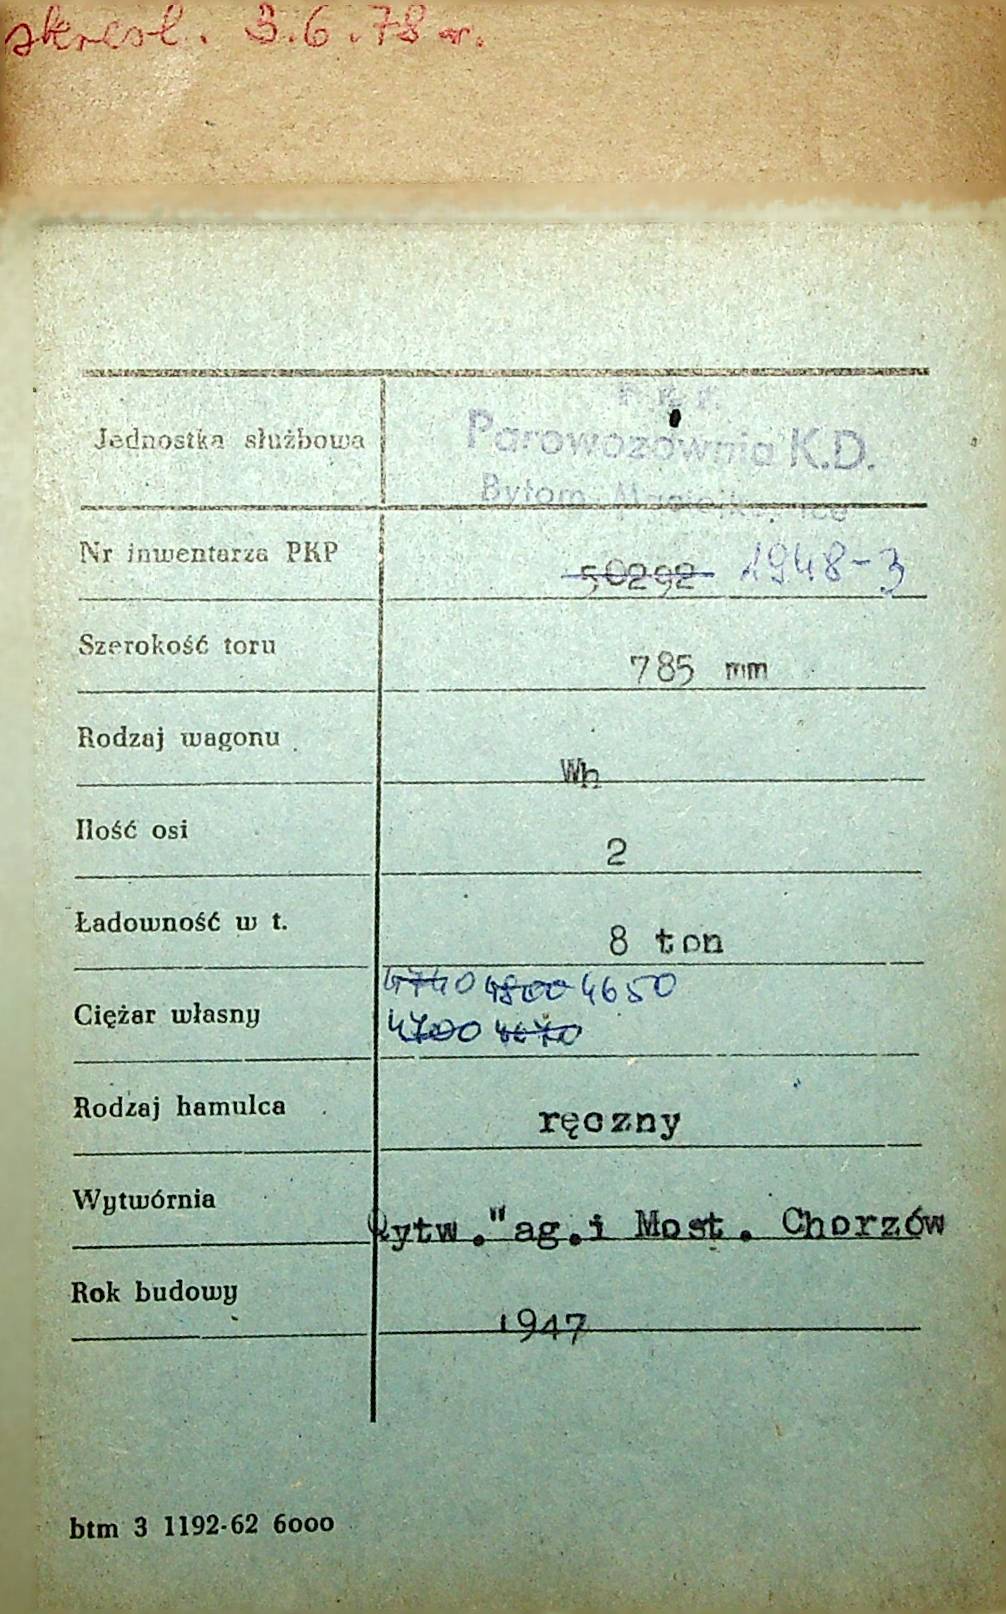 skreśl. 3.6.78 r.
Jednostka służbowa
Parowozownia K.D.
Bytom
Nr inwentarza PKP
50292 1948-3
Szerokość toru
785 mm
Rodzaj wagonu
Wh
Ilość osi
2
Ładowność w t.
8 ton
Ciężar własny
4740 4800 4650
4700 4670
Rodzaj hamulca
ręczny
Wytwórnia
Wytw."ag.i Most. Chorzów
Rok budowy
1947
btm 3 1192-62 6000